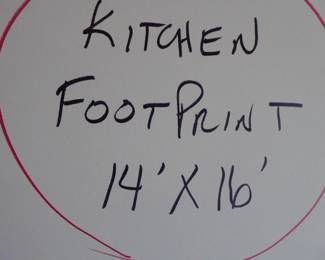 KITCHEN
FOOTPRINT
14' X 16'